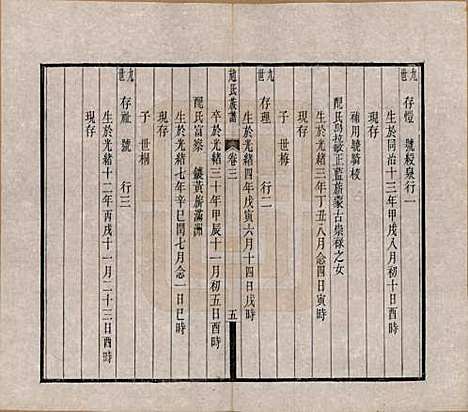 九世
存愷　號毅泉行一
生於同治十三年甲戌八月初十日酉時
補用驍騎校
配氏烏拉正藍旗蒙古崇祿之女
生於光緒三年丁丑八月念四日寅時
現存
子　世梅
九世
存理　號　行二
生於光緒四年戊寅六月十四日戌時
趙氏族譜　卷三　五
卒於光緒三十年甲辰十一月初五日酉時
配氏富察　鑲黃旗滿洲
生於光緒七年辛巳閏七月念一日巳時
子　世桐
現存
九世
存祉　號　行三
生於光緒十二年丙戌十一月二十三日酉時
現存